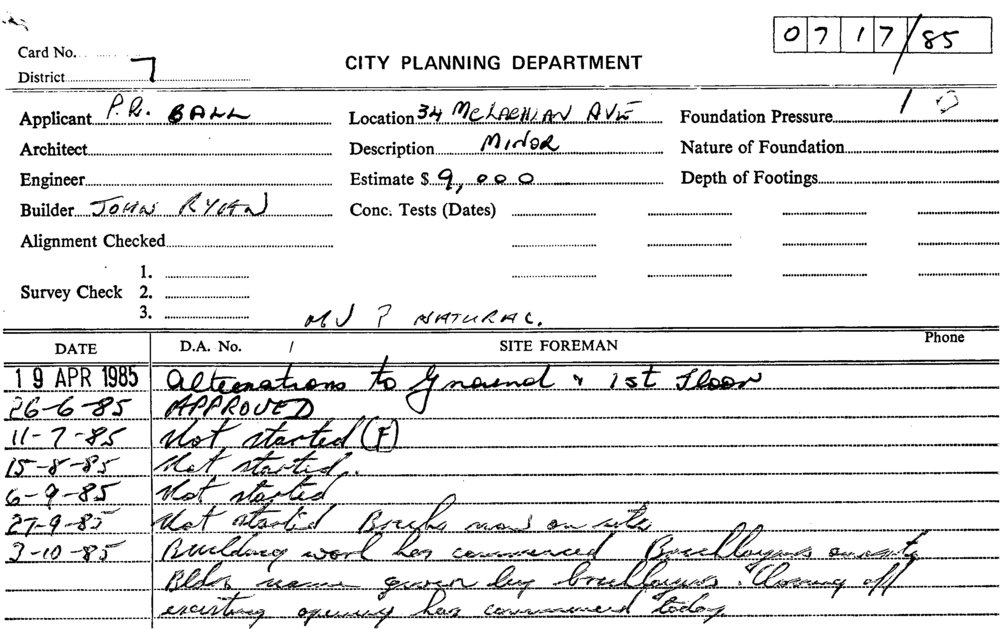 0717/85
Card No.
District 7
CITY PLANNING DEPARTMENT
Applicant P.R. BALL
Location 34 McLACHLAN AVE
Foundation Pressure
Architect
Description MINOR
Nature of Foundation
Engineer
Estimate $ 9,000
Depth of Footings
Builder JOHN RYAN
Conc. Tests (Dates)
Alignment Checked
1.
Survey Check 2.
3.
NATURAL.
DATE D.A. No. / SITE FOREMAN Phone
19 APR 1985 Alterations to Ground & 1st Floor
26-6-85 APPROVED
11-7-85 Not started (F)
15-8-85 Not started.
6-9-85 Not started
27-9-85 Not started Bricks now on site
3-10-85 Building work has commenced Bricklayers on site
Bldr name given by bricklayers. Closing off
existing opening has commenced today